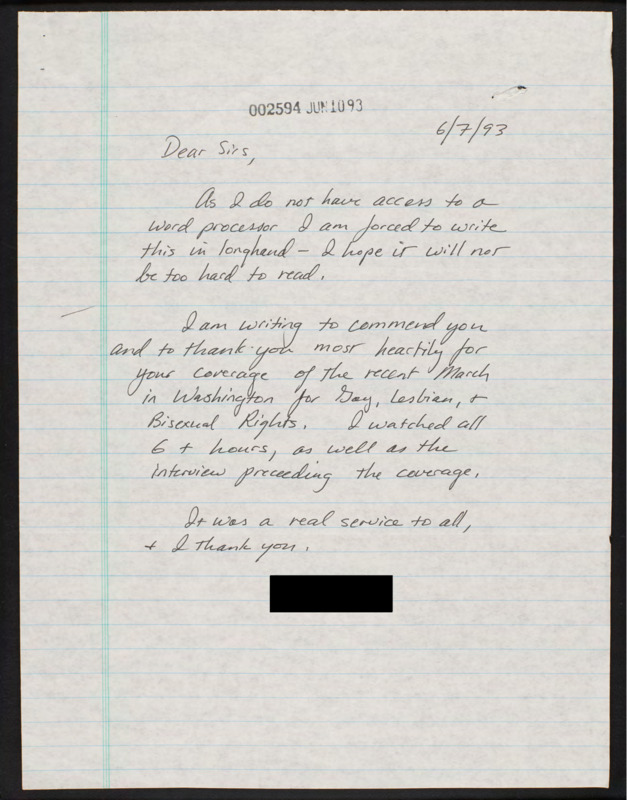 002594 JUN 10 93
6/7/93
Dear Sirs,
As I do not have access to a
word processor I am forced to write
this in longhand – I hope it will not
be too hard to read.
I am writing to commend you
and to thank you most heartily for
your coverage of the recent March
in Washington for Gay, Lesbian, +
Bisexual Rights. I watched all
6 + hours, as well as the
interview preceeding the coverage.
It was a real service to all,
+ I thank you.